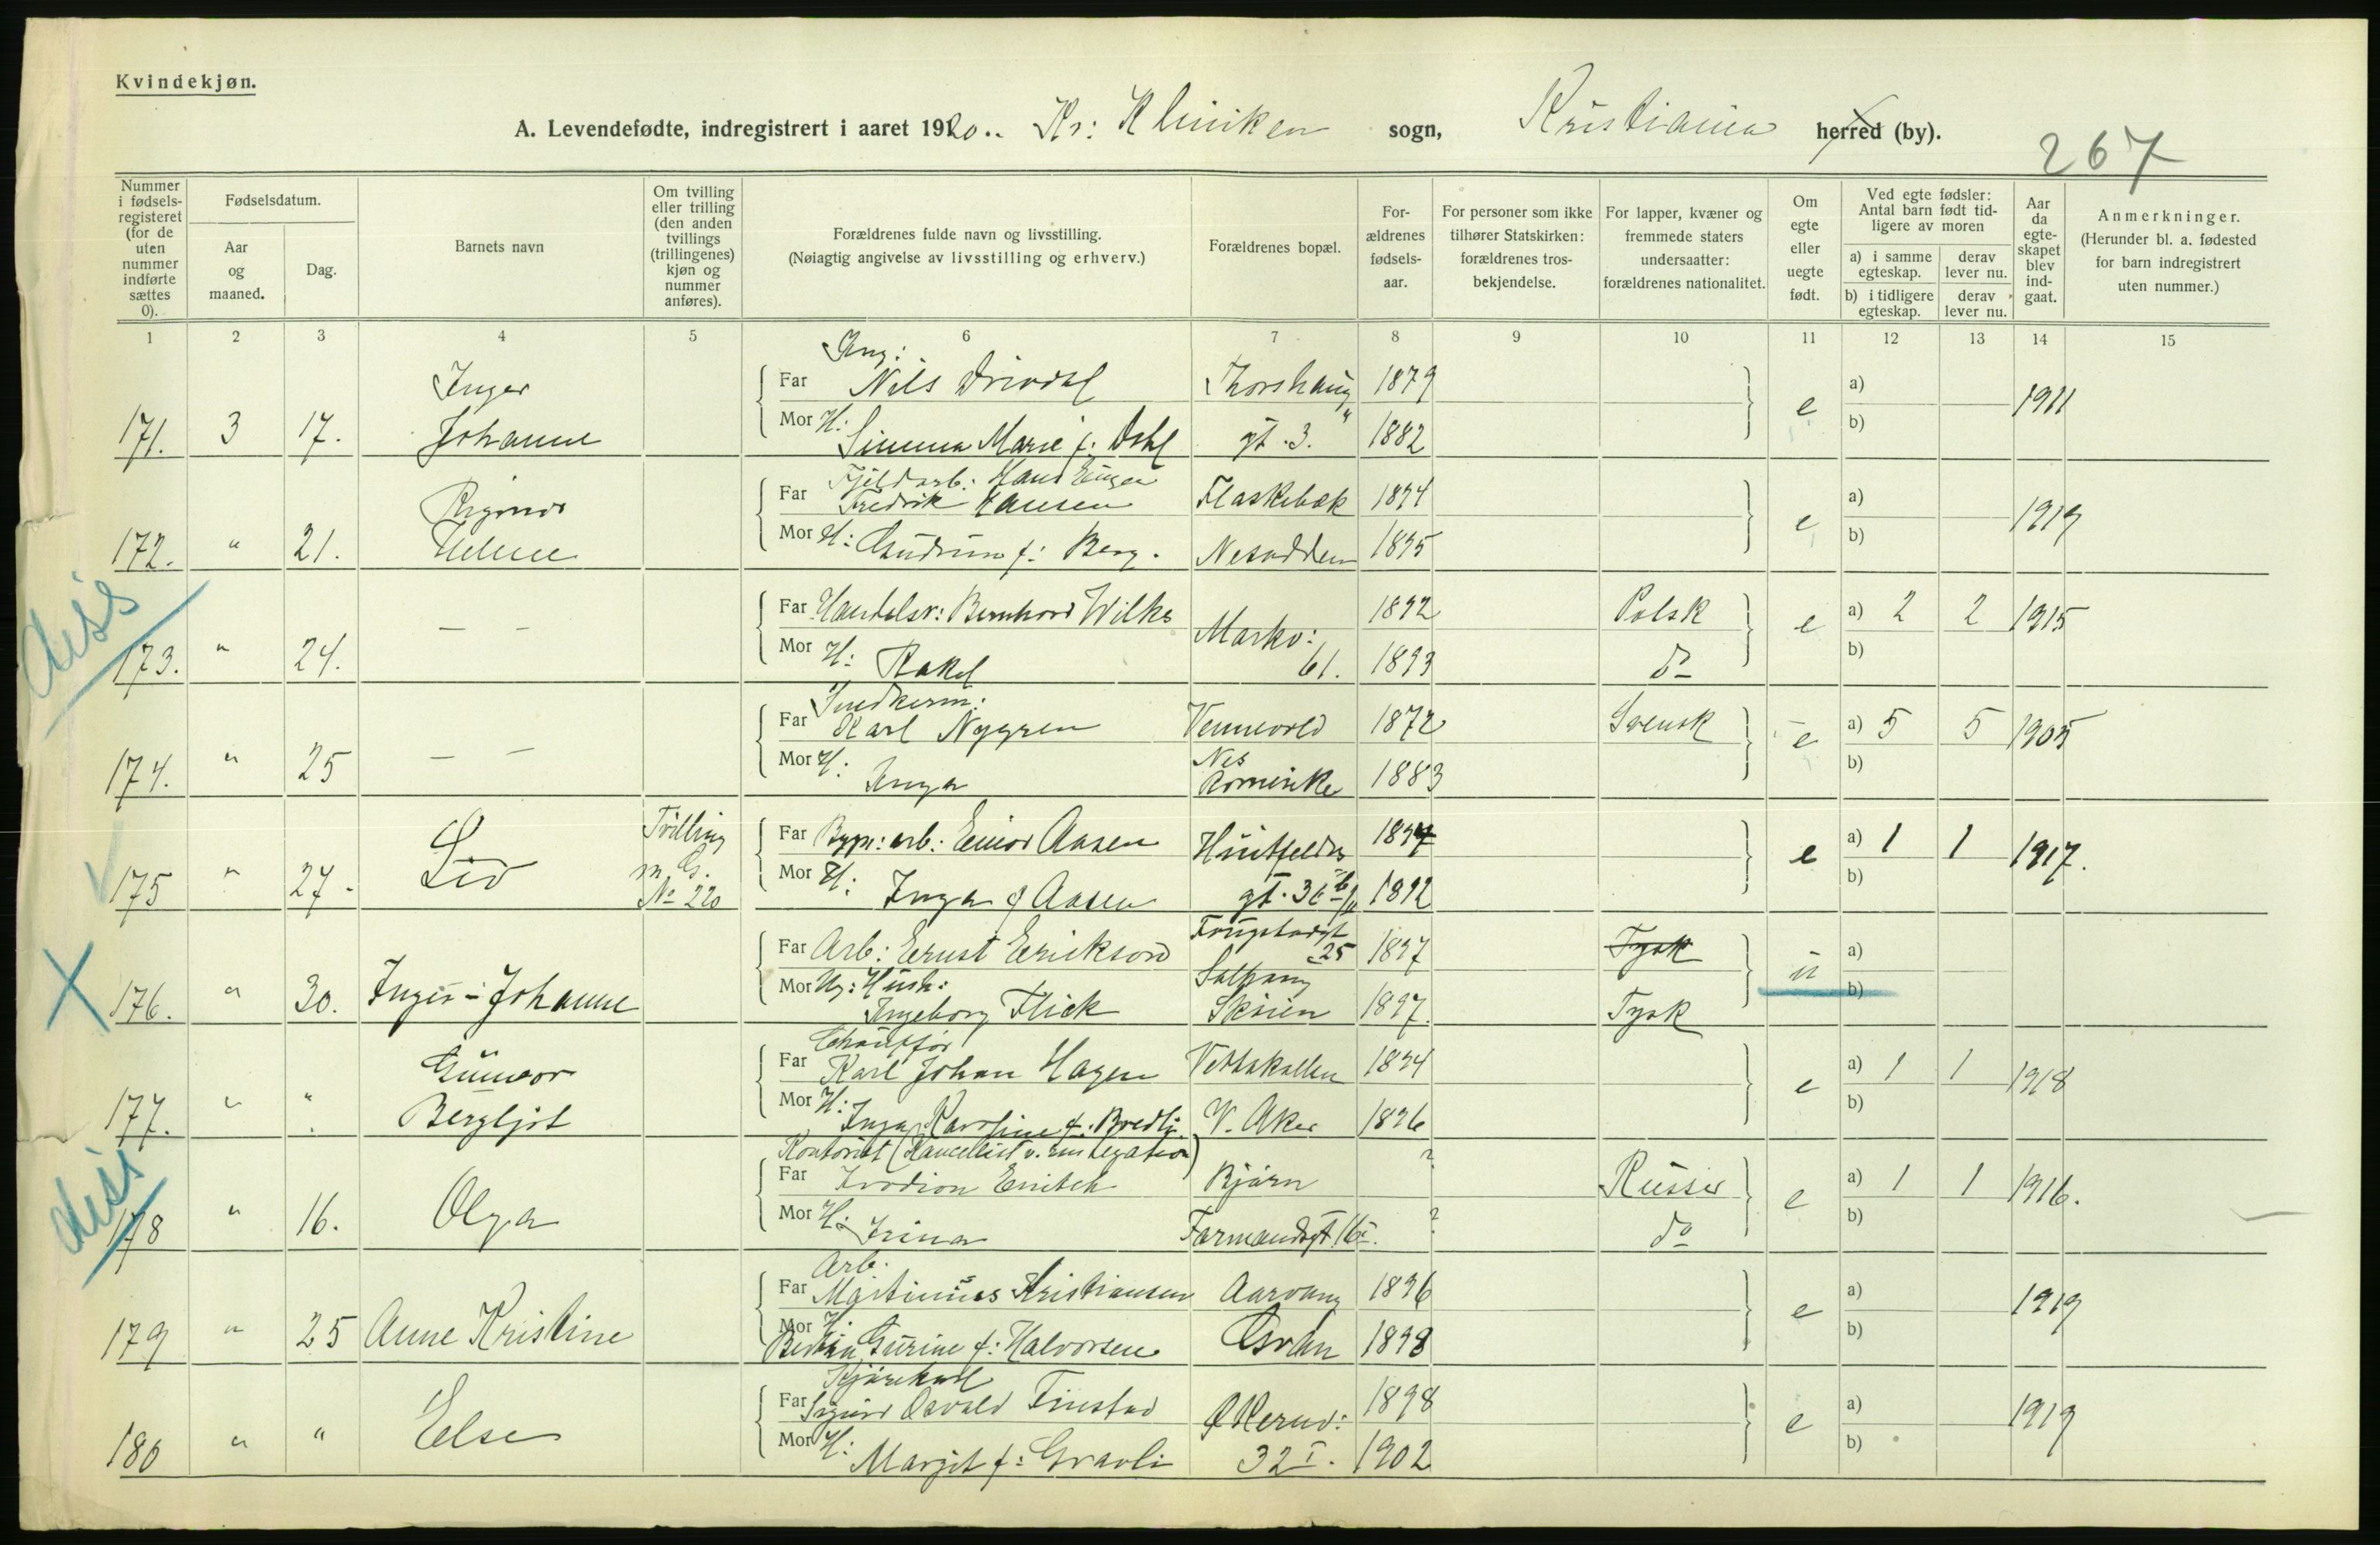 Kvindekjøn.
A. Levendefødte, indregistrert i aaret 1920.. Kr: Kliniken sogn, Kristiania herred (by).
267
Nummer i fødsels-registeret (for de uten nummer indførte sættes 0).
Fødselsdatum.
Aar og maaned.
Dag.
Barnets navn
Om tvilling eller trilling (den anden tvillings (trillingenes) kjøn og nummer anføres).
Forældrenes fulde navn og livsstilling.
(Nøiagtig angivelse av livsstilling og erhverv.)
Forældrenes bopæl.
For-ældrenes fødsels-aar.
For personer som ikke tilhører Statskirken: forældrenes tros-bekjendelse.
For lapper, kvæner og fremmede staters undersaatter: forældrenes nationalitet.
Om egte eller uegte født.
Ved egte fødsler: Antal barn født tid-ligere av moren
a) i samme egteskap.
derav lever nu.
b) i tidligere egteskap.
derav lever nu.
Aar da egte-skapet blev ind-gaat.
Anmerkninger.
(Herunder bl. a. fødested for barn indregistrert uten nummer.)
1 2 3 4 5 6 7 8 9 10 11 12 13 14 15
Ing:
Inger Far Nils Drivdal Thorshaug 1879 a)
171. 3 17. Johanne Mor H: Simma Marie f. Dahl gt. 3. 1882 e b) 1911
Fjeldarb: Hans Einar
Rigmor Far Fredrik Hansen Flaskebæk 1894 a)
172. " 21. Helene Mor H: Gudrun f: Berg. Nesodden 1895 e b) 1919
diss
Far Handelsr: Bernhard Wilks 1892 Polsk a) 2 2 1915
173. " 24. — — Mor H: Rakel Markv: 61. 1893 do e b)
Snedkerm:
Far Karl Nygren Vennevold 1872 Svensk a) 5 5 1905
174. " 25 — — Mor H: Inga Nes Romerike 1883 e b)
Tvilling Far Bygn: arb: Einar Aasen Huitfeldts 1894 a) 1 1 1917.
175 " 27. Liv m. G. No 220 Mor H: Inga f Aasen gt. 1892 e b)
Far Arb: Ernst Erikson 25 1897 Tysk a)
176. " 30. Inger-Johanne Mor Ug: Hush: Ingeborg Flick Solhaug Skøien 1897. Tysk u b)
Chauffør
Gunvor Far Karl Johan Hagen Vettakollen 1894 a) 1 1 1918
177. " " Bergljot Mor H: Inga Karoline f. Bredli. V. Aker 1896 e b)
diss
Kontorist (Kancellist v. russ legation)
Far Irodion Bjørn ? Russer a) 1 1 1916.
178 " 16. Olga Mor H: Irina Farmandsgt 16 I. ? do e b)
Arb.
Far Martinius Kristiansen Aarvang 1896 a)
179 " 25 Anne Kristine Mor H: Gurine f: Halvorsen 1898 e b) 1919
Kjørekarl
Far Sigurd Osvald Finstad Økernv: 1898 a)
180 " " Else Mor H: Margit f: Gravli 32 I. 1902 e b) 1919